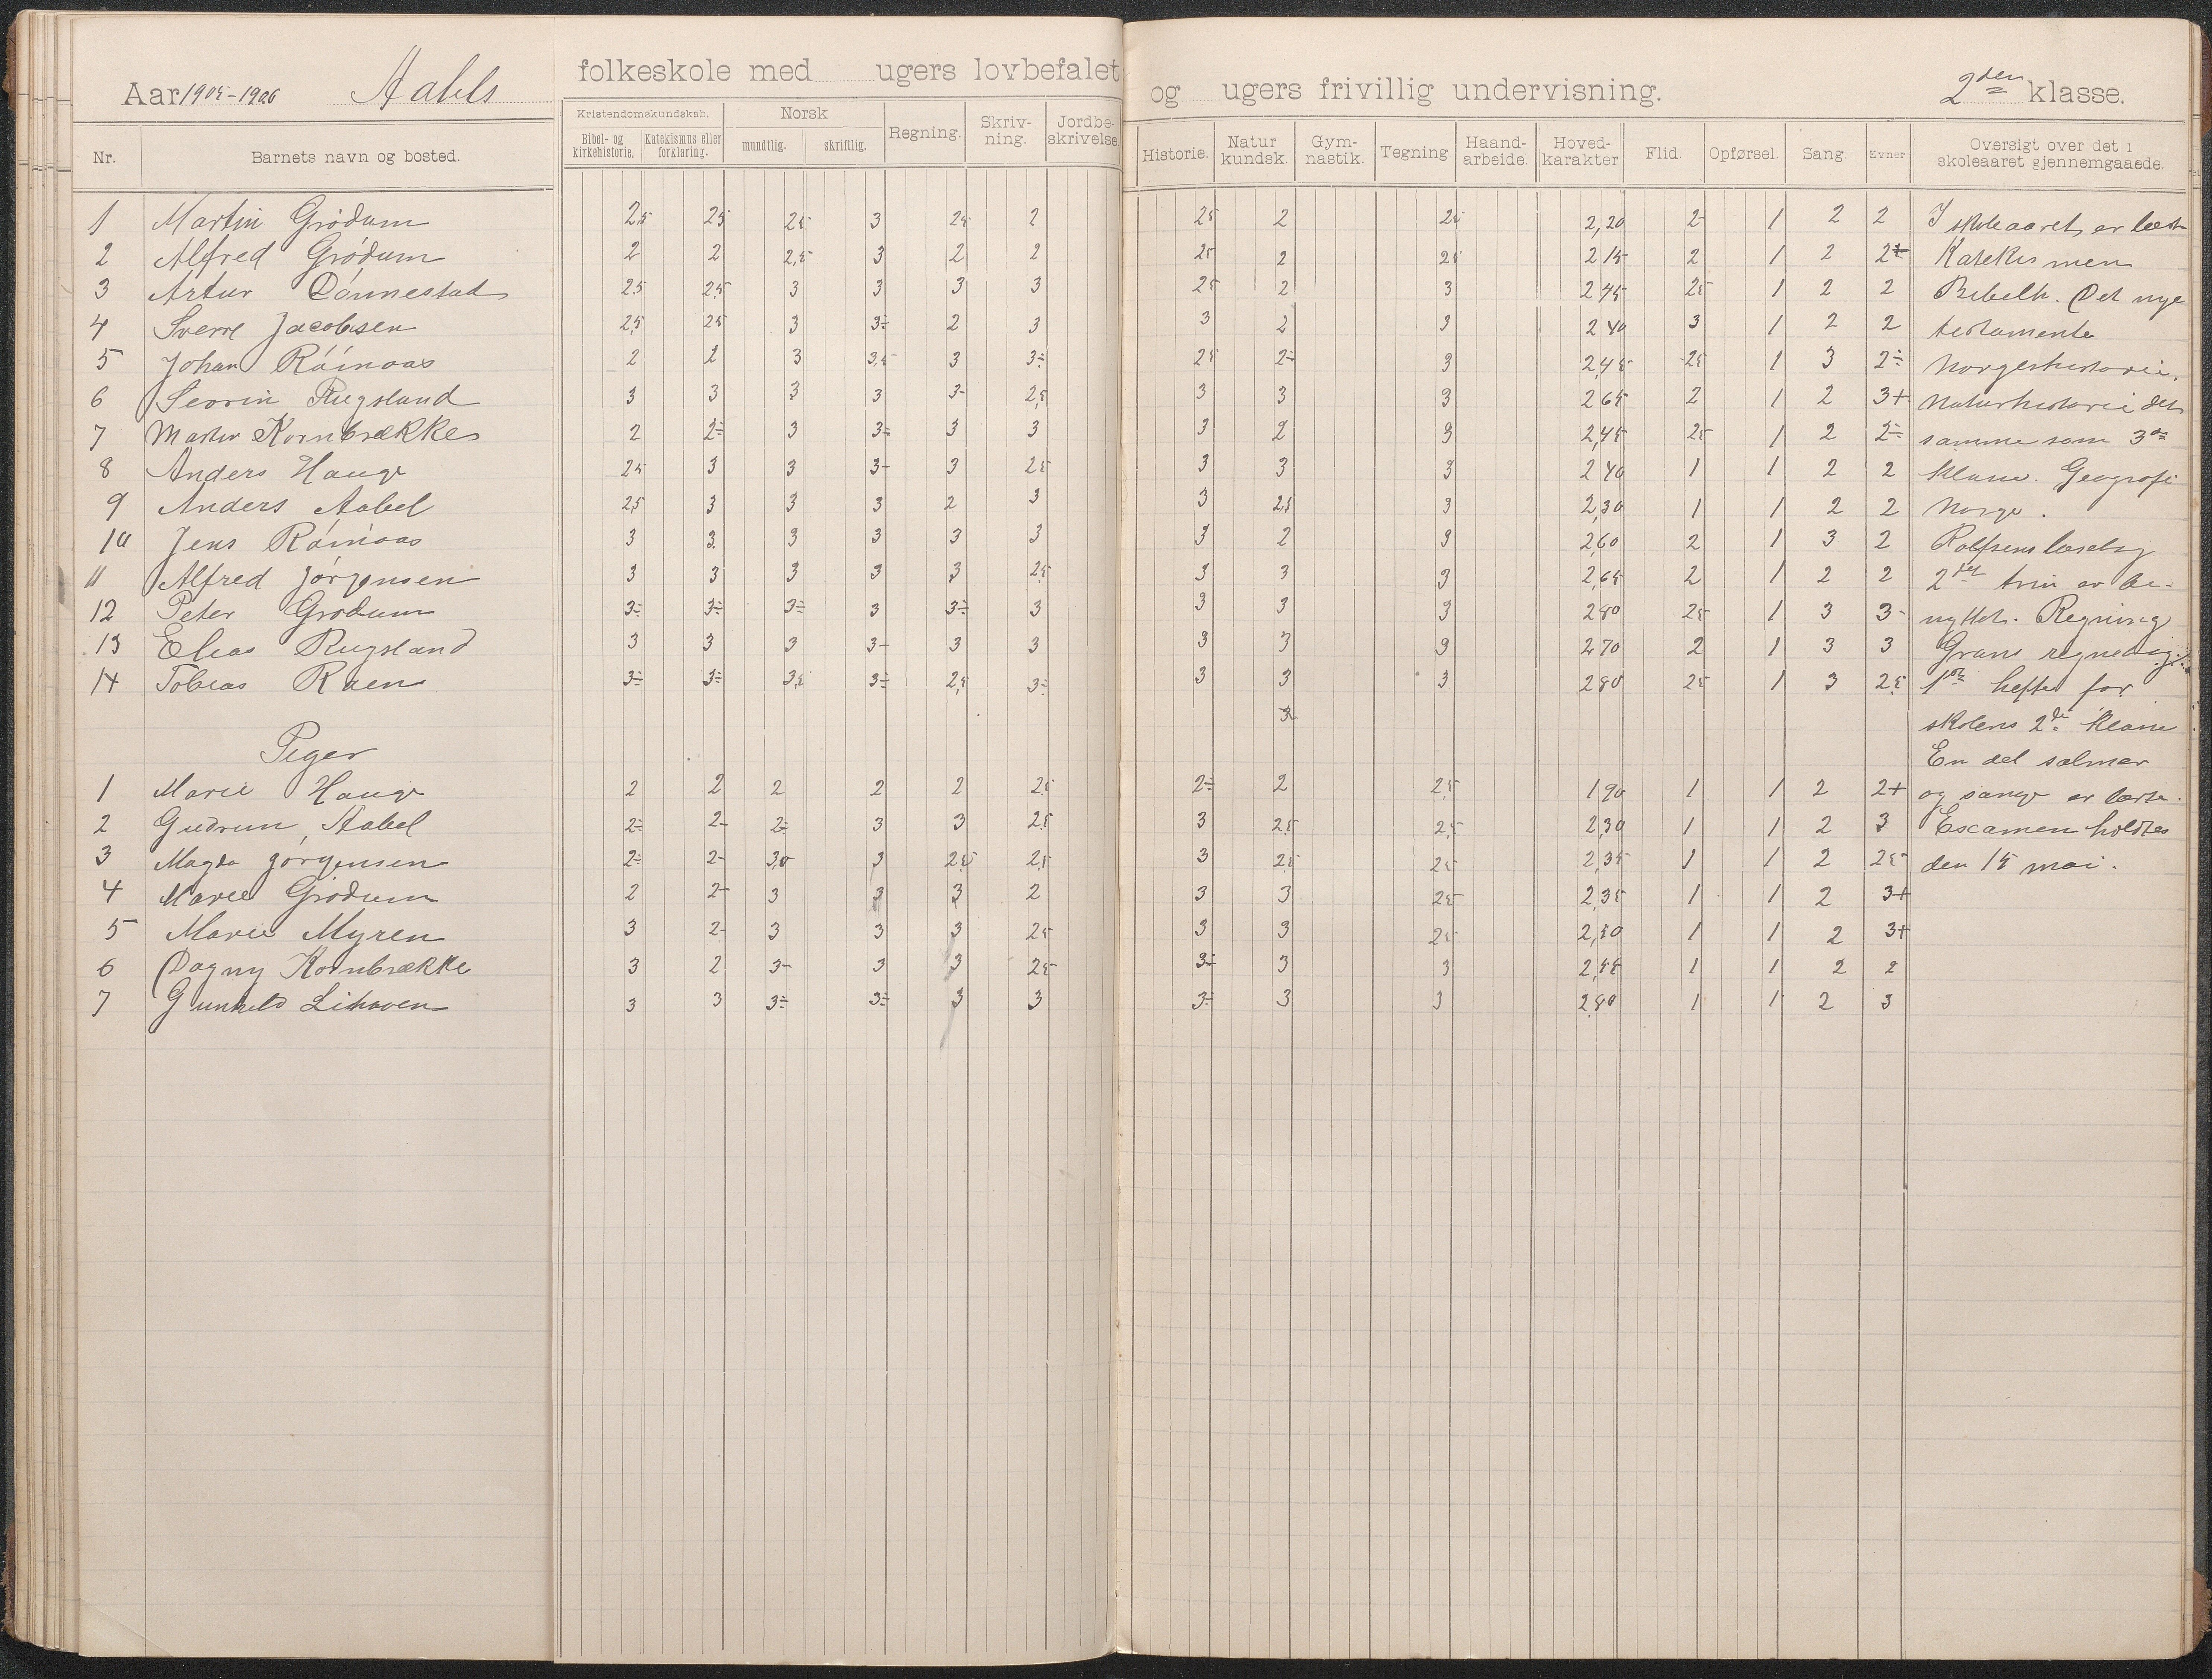 Aar 1905-1906 Aabels folkeskole med ugers lovbefalet og ugers frivillig undervisning. 2den klasse.
Nr. Barnets navn og bosted. Kristendomskundskab. Bibel- og kirkehistorie. Katekismus eller forklaring. Norsk mundtlig. skriftlig. Regning. Skriv-ning. Jordbe-skrivelse Historie. Natur kundsk. Gym-nastik. Tegning Haand-arbeide. Hoved-karakter Flid. Opførsel. Sang. Evner Oversigt over det i skoleaaret gjennemgaaede.
1 Martin Grødum 2,5 25 25 3 25 2 25 2 25 2,20 2- 1 2 2 I skoleaaret er læst
2 Alfred Grødum 2 2 2,5 3 2 2 25 2 25 2 15 2 1 2 2+ Katekismen
3 Artur Dønnestad 25 25 3 3 3 3 25 2 3 2 45 25 1 2 2 Bibelh. Det nye
4 Sverre Jacobsen 2,5 25 3 3÷ 2 3 3 2 3 2 40 3 1 2 2 testamente
5 Johan 2 2 3 3,5 3 3÷ 25 2÷ 3 2,45 25 1 3 2÷ Norgeshistorie,
6 Severin Rugsland 3 3 3 3 3- 2,5 3 3 3 2 65 2 1 2 3+ Naturhistorie det
7 Martin Kornbrække 2 2÷ 3 3÷ 3 3 3 2 3 2,45 25 1 2 2÷ samme som 3die
8 Anders Hauge 25 3 3 3- 3 25 3 3 3 2 40 1 1 2 2 klasse. Geografi
9 Anders Aabel 25 3 3 3 2 3 3 25 3 2,30 1 1 2 2 Norge.
10 Jens 3 3 3 3 3 3 3 2 3 2,60 2 1 3 2 Rolfsens læsebog
11 Alfred Jørgensen 3 3 3 3 3 25 3 3 3 2,65 2 1 2 2 2det trin er be-
12 Peter Grødum 3÷ 3÷ 3÷ 3 3÷ 3 3 3 3 2 80 25 1 3 3- nyttet. Regning
13 Elias Rugsland 3 3 3 3- 3 3 3 3 3 2 70 2 1 3 3 Grans regnebog.
14 Tobias Raen 3÷ 3÷ 3,5 3÷ 2,5 3÷ 3 3 3 2 80 25 1 3 25 1ste hefte for
3 skolens 2de klasse
Piger En del salmer
1 Marie Hauge 2 2 2 2 2 25 2÷ 2 2,5 1 90 1 1 2 2+ og sange er lærte.
2 Gudrun Aabel 2÷ 2- 2÷ 3 3 25 3 25 25 2,30 1 1 2 3 Examen holdtes
3 Magda Jørgensen 2÷ 2- 3,0 3 25 2,5 3 25 25 2,35 1 1 2 25 den 15 mai.
4 Marie Grødum 2 2- 3 3 3 2 3 3 25 2,35 1 1 2 3+
5 Marie Myren 3 2- 3 3 3 25 3 3 25 2,50 1 1 2 3+
6 Dagny Kornbrække 3 2 3- 3 3 25 3÷ 3 3 2,55 1 1 2 2
7 Gunhild Lihaven 3 3 3÷ 3÷ 3 3 3÷ 3 3 2,80 1 1 2 3